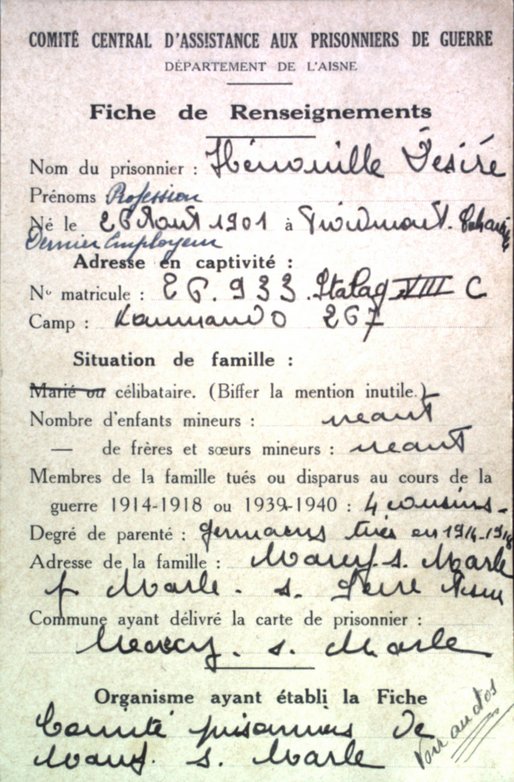 COMITÉ CENTRAL D'ASSISTANCE AUX PRISONNIERS DE GUERRE
DÉPARTEMENT DE L'AISNE
Fiche de Renseignements
Nom du prisonnier : Hénouille Désiré
Prénoms Profession
Né le 26 Aout 1901 à
Dernier Employeur
Adresse en captivité :
No matricule : 26.933. Stalag VIII C
Camp : Kommando 267
Situation de famille :
Marié ou célibataire. (Biffer la mention inutile.)
Nombre d'enfants mineurs : neant
— de frères et sœurs mineurs : neant
Membres de la famille tués ou disparus au cours de la
guerre 1914-1918 ou 1939-1940 : 4 cousins -
Degré de parenté : germains tués en 1914-1918
Adresse de la famille : Marcy. s. Marle
p Marle. s. Serre Aisne
Commune ayant délivré la carte de prisonnier :
Marcy. s. Marle
Organisme ayant établi la Fiche
Comité prisonniers de
Marcy. s. Marle
Voir au dos